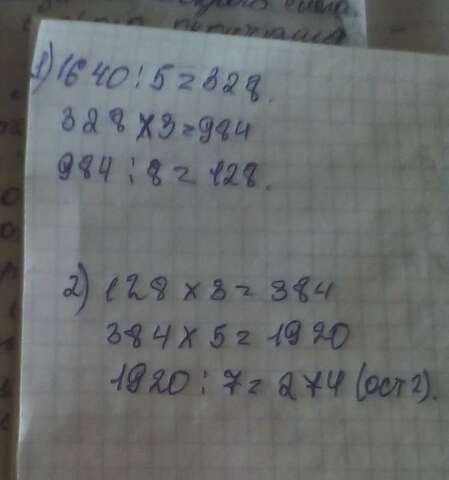 1) 1640 : 5 = 328.
328 × 3 = 984
984 : 8 = 128.
2) 128 × 3 = 384
384 × 5 = 1920
1920 : 7 = 274 (ост 2).